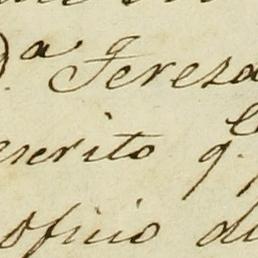 D.ª Tereza
escrito q.
oficio du